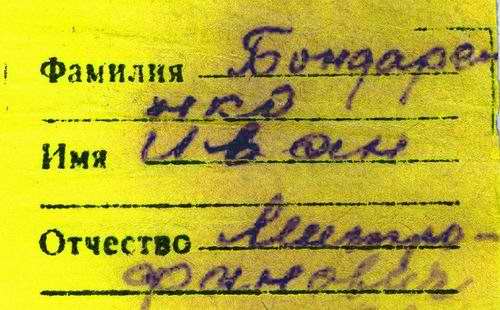 Фамилия Бондаре-
нко
Имя Иван
Отчество Митро-
фанович